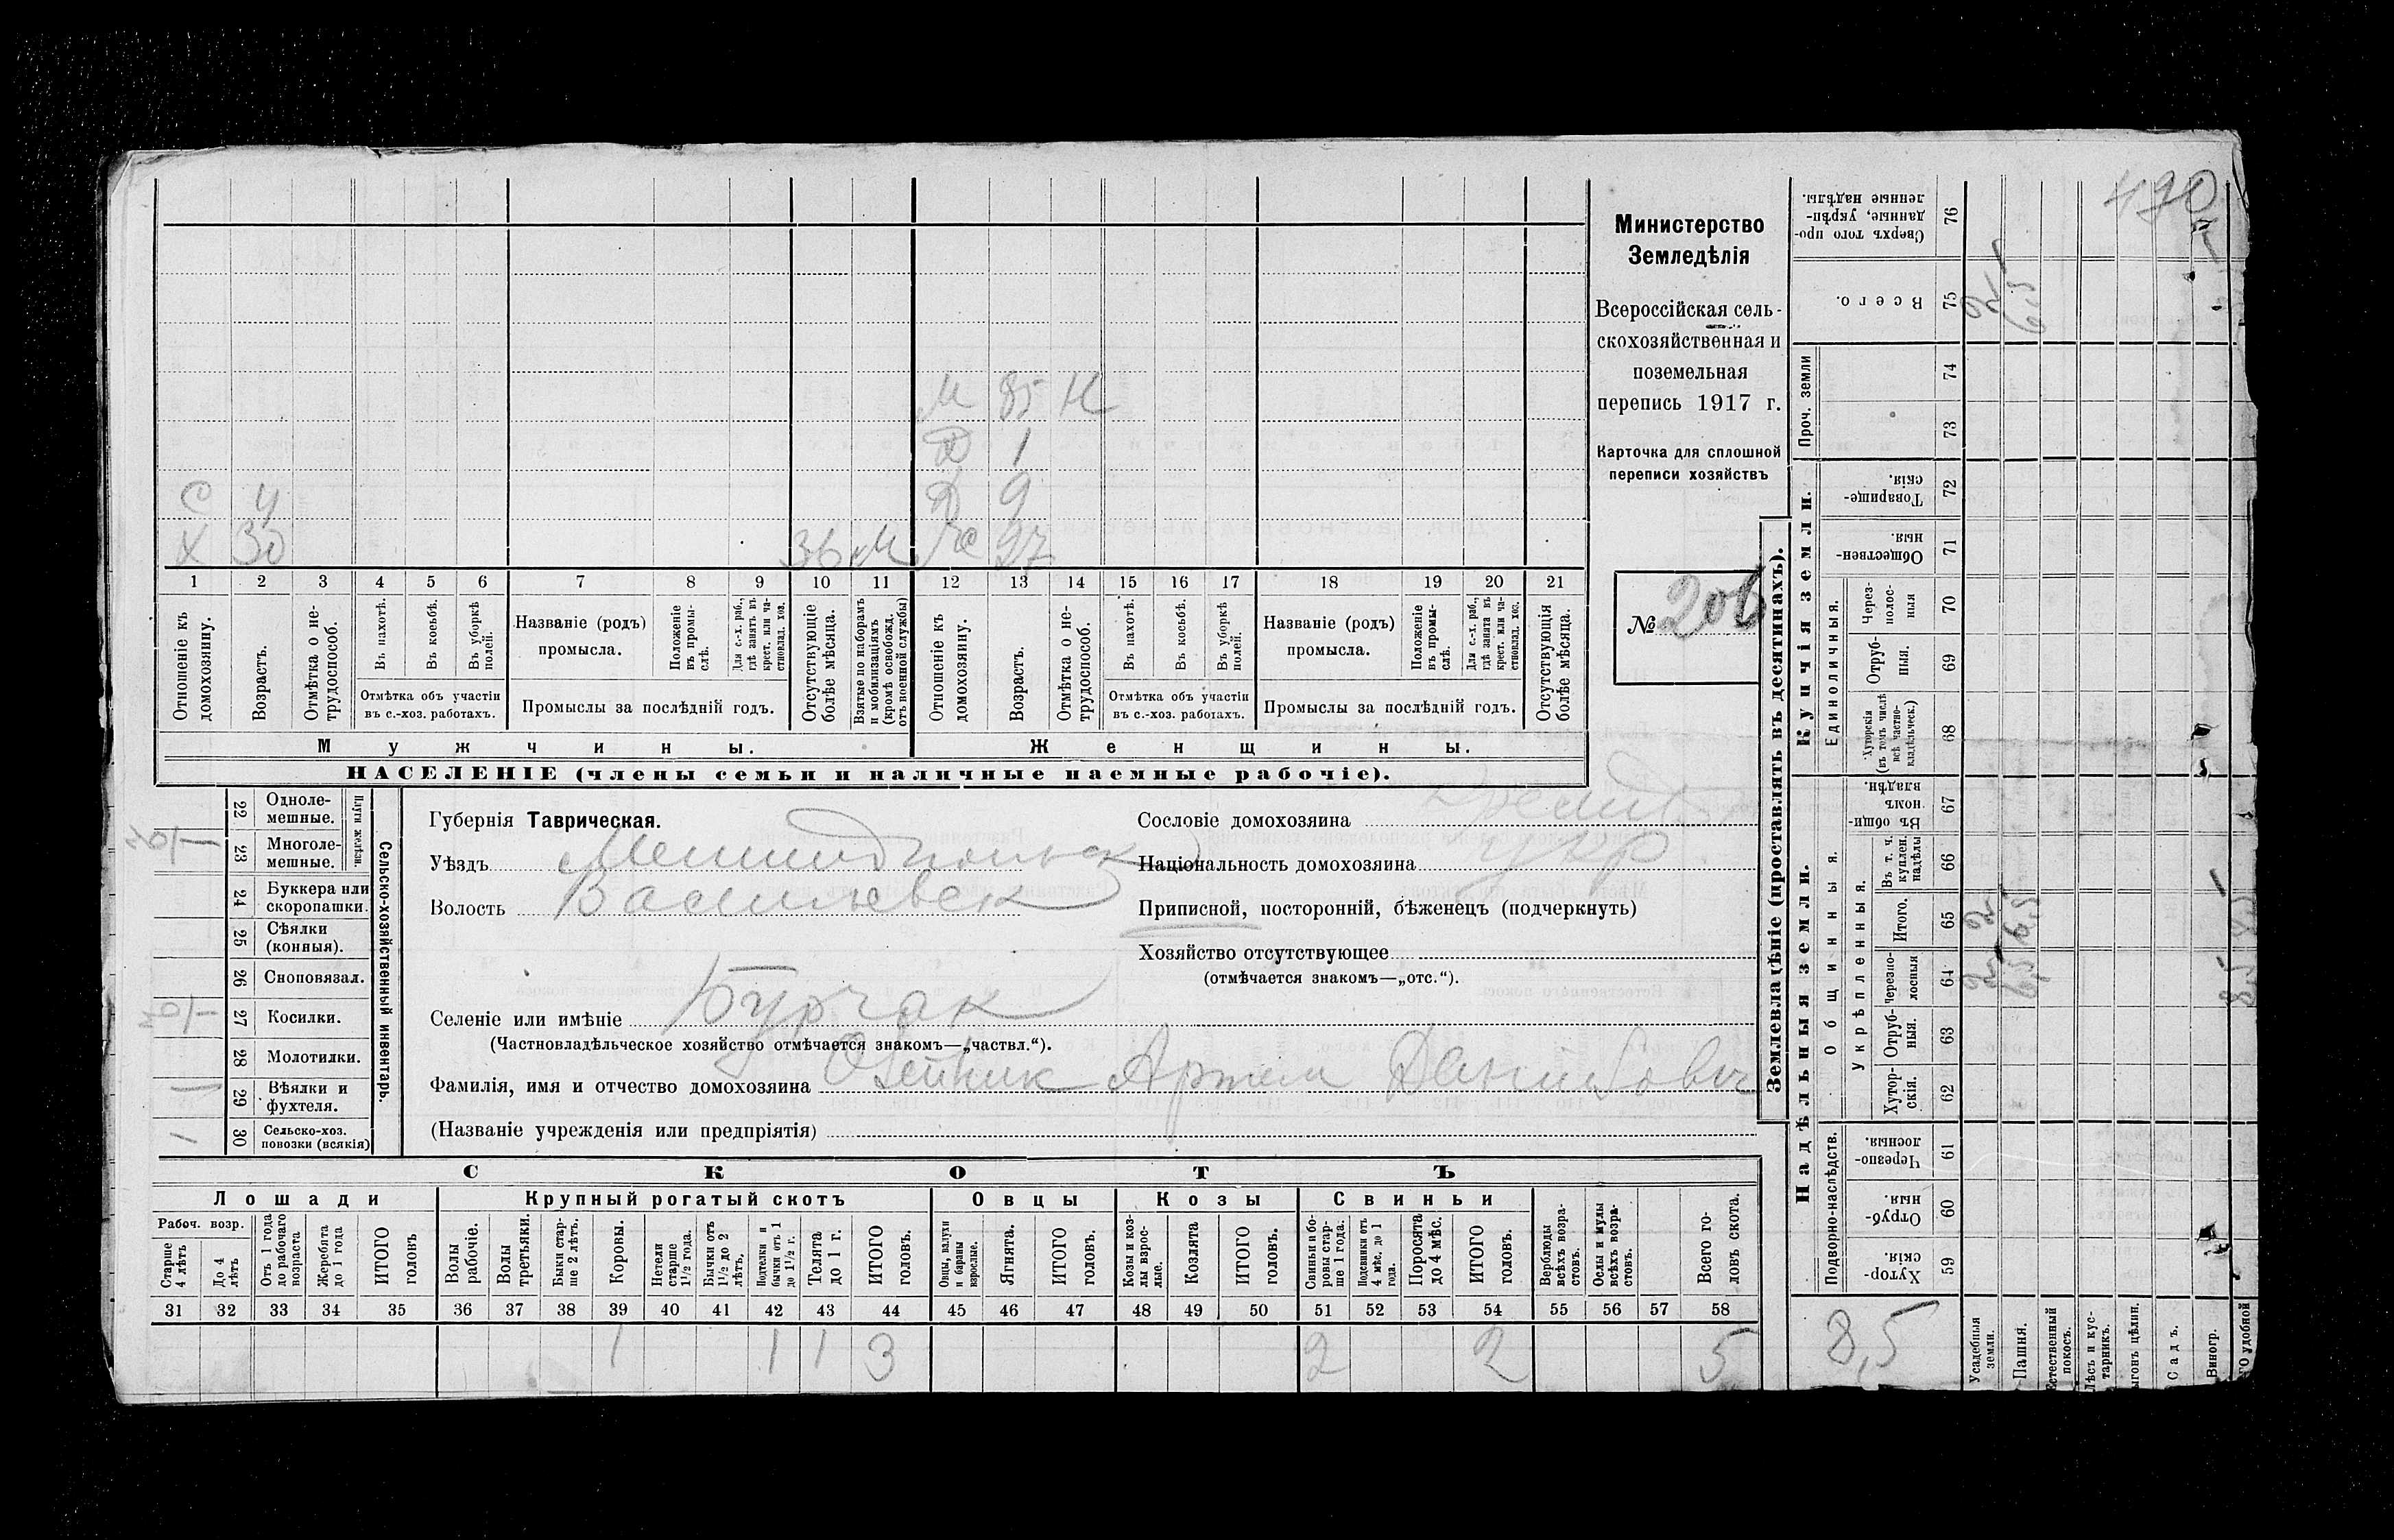 М 85 Н
Д 1
С 4 Д 9
Х 30 36 М Ж 27
1 2 3 4 5 6 7 8 9 10 11 12 13 14 15 16 17 18 19 20 21
Отношеніе къ домохозяину.
Возрастъ.
Отмѣтка о не-трудоспособ.
Въ пахотѣ.
Въ косьбѣ.
Въ уборкѣ полей.
Отмѣтка объ участіи
въ с.-хоз. работахъ.
Названіе (родъ)
промысла.
Положеніе въ промы-слѣ.
Для с.-х. раб., гдѣ занятъ въ крест. или ча-стновлад. хоз.
Промыслы за послѣдній годъ.
Отсутствующіе болѣе мѣсяца.
Взятые по наборамъ и мобилизаціямъ (кромѣ освобожд. отъ военной службы)
Отношеніе къ домохозяину.
Возрастъ.
Отмѣтка о не-трудоспособ.
Въ пахотѣ.
Въ косьбѣ.
Въ уборкѣ полей.
Отмѣтка объ участіи
въ с.-хоз. работахъ.
Названіе (родъ)
промысла.
Положеніе въ промы-слѣ.
Для с.-х. раб., гдѣ занята въ крест. или ча-стновлад. хоз.
Промыслы за послѣдній годъ.
Отсутствующія болѣе мѣсяца.
Мужчины.
Женщины.
НАСЕЛЕНІЕ (члены семьи и наличные наемные рабочіе).
Министерство
Земледѣлія
Всероссійская сель-
скохозяйственная и
поземельная
перепись 1917 г.
Карточка для сплошной
переписи хозяйствъ
№ 206
Сельско-хозяйственный инвентарь.
Плуги желѣзн.
22 Одноле-
мешные.
23 Многоле-
мешные.
24 Буккера или
скоропашки.
25 Сѣялки
(конныя).
26 Сноповязал.
27 Косилки.
28 Молотилки.
29 Вѣялки и
фухтеля.
30 Сельско-хоз.
повозки (всякія)
Губернія Таврическая.
Уѣздъ Мелитопольск
Волость Васильевск
Сословіе домохозяина
Національность домохозяина укр
Приписной, посторонній, бѣженецъ (подчеркнуть)
Хозяйство отсутствующее
(отмѣчается знакомъ—„отс.“).
Селеніе или имѣніе Бурчак
(Частновладѣльческое хозяйство отмѣчается знакомъ—„частвл.“).
Фамилія, имя и отчество домохозяина Олейник Артем Данилович
(Названіе учрежденія или предпріятія)
СКОТЪ
Лошади
Крупный рогатый скотъ
Овцы
Козы
Свиньи
Рабоч. возр.
Старше 4 лѣтъ
До 4 лѣтъ
Отъ 1 года до рабочаго возраста
Жеребята до 1 года
ИТОГО головъ
Волы рабочіе.
Волы третьяки.
Быки стар-ше 2 лѣтъ.
Коровы.
Нетели старше 1½ года.
Бычки отъ 1½ до 2 лѣтъ.
Подтелки и бычки отъ 1 до 1½ г.
Телята до 1 г.
ИТОГО головъ.
Овцы, валухи и бараны взрослые.
Ягнята.
ИТОГО головъ.
Козы и коз-лы взрос-лые.
Козлята
ИТОГО головъ.
Свиньи и бо-ровы стар-ше 1 года.
Подсвинки отъ 4 мѣс. до 1 года.
Поросята до 4 мѣс.
ИТОГО головъ.
Верблюды всѣхъ возра-стовъ.
Ослы и мулы всѣхъ возра-стовъ.
Всего го-ловъ скота.
31 32 33 34 35 36 37 38 39 40 41 42 43 44 45 46 47 48 49 50 51 52 53 54 55 56 57 58
1 1 1 3 2 2 5
Землевладѣніе (проставлять въ десятинахъ).
Купчія земли.
Надѣльныя земли.
Сверхъ того про-данные, укрѣп-ленные надѣлы. 76
Всего. 75
Проч. земли 74 73
Товарище-скія. 72
Обществен-ныя. 71
Единоличныя.
Через-полос-ныя 70
Отруб-ныя. 69
Хуторскія (въ томъ числѣ всѣ частно-владѣльческ.) 68
Общинныя.
Въ общи-номъ владѣн. 67
Укрѣпленныя.
Въ т. ч. куплен. надѣлы 66
Итого. 65
Черезпо-лосныя 64
Отруб-ныя. 63
Хутор-скія. 62
Подворно-наслѣдств.
Черезпо-лосныя. 61
Отруб-ныя. 60
Хутор-скія. 59
8,5
Усадебныя земли.
Пашня.
Естественный покосъ.
Лѣсъ и кус-тарникъ.
ыгонъ цѣлин.
Садъ.
Виногр.
ГО удобной